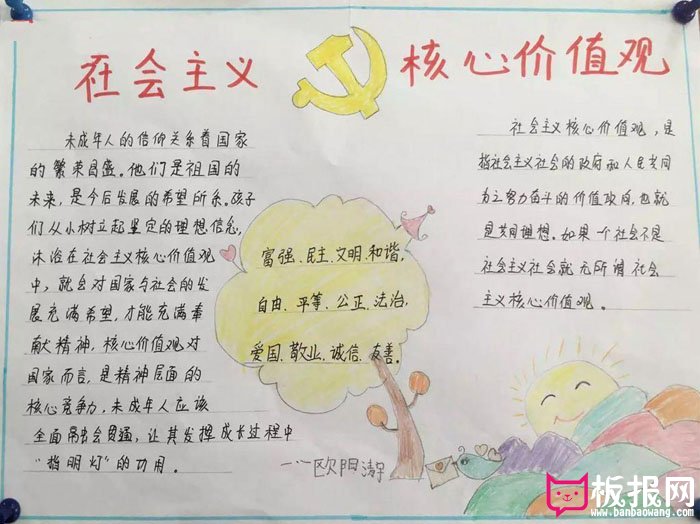 在会主义 核心价值观
未成年人的信仰关系着国家
的繁荣昌盛。他们是祖国的
未来，是今后发展的希望所系。孩子
们从小树立起坚定的理想信念，
沐浴在社会主义核心价值观
中，就会对国家与社会的发
展充满希望，才能充满奉
献精神，核心价值观对
国家而言，是精神层面的
核心竞争力，未成年人应该
全面融会贯通，让其发挥成长过程中
“指明灯”的功用。
富强、民主、文明、和谐，
自由、平等、公正、法治，
爱国、敬业、诚信、友善。
社会主义核心价值观，是
指社会主义社会的政府和人民共同
为之努力奋斗的价值取向，也就
是共同理想。如果一个社会不是
社会主义社会就无所谓社会
主义核心价值观。
欧阳
板报网
www.banbaowang.com